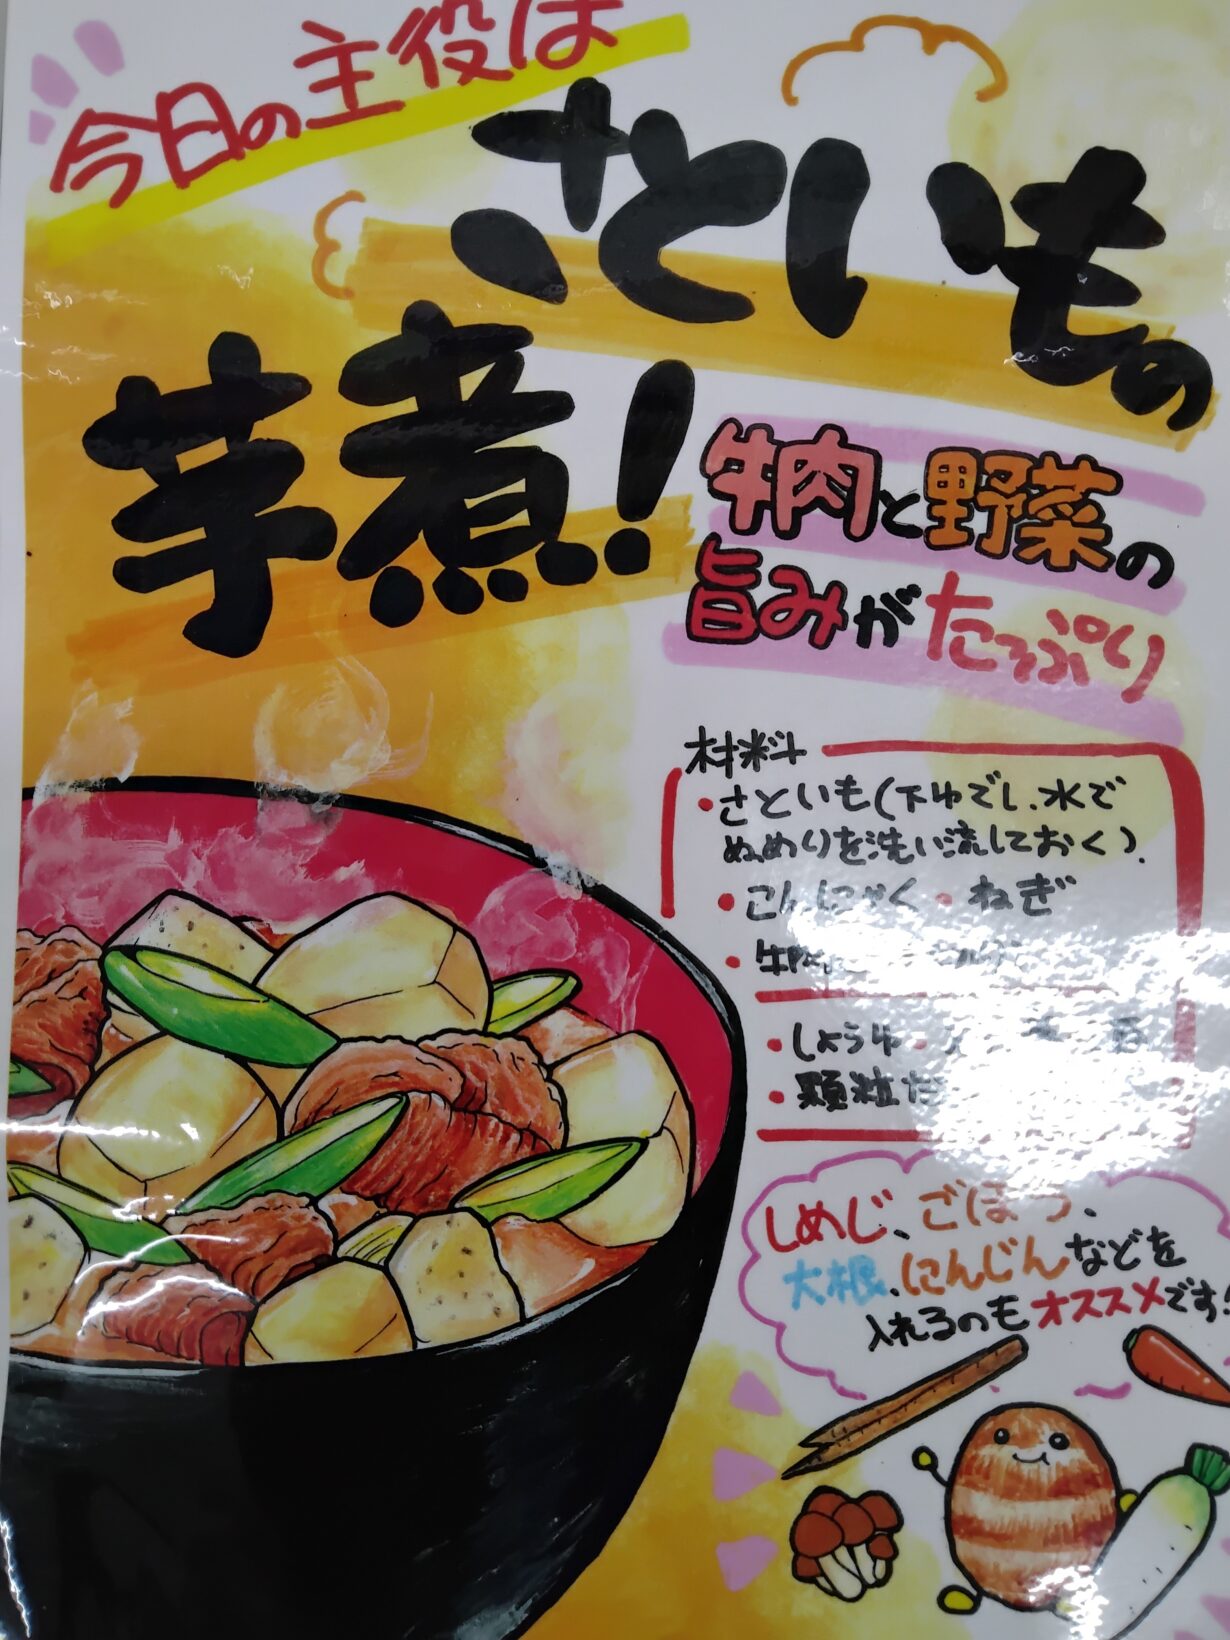 今日の主役は
さといもの
芋煮！
牛肉と野菜の
旨みがたっぷり
材料
・さといも(下ゆでし、水で
ぬめりを洗い流しておく).
・こんにゃく・ねぎ
・牛肉
・しょうゆ
・顆粒だ
しめじ、ごぼう、
大根、にんじんなどを
入れるのもオススメです!